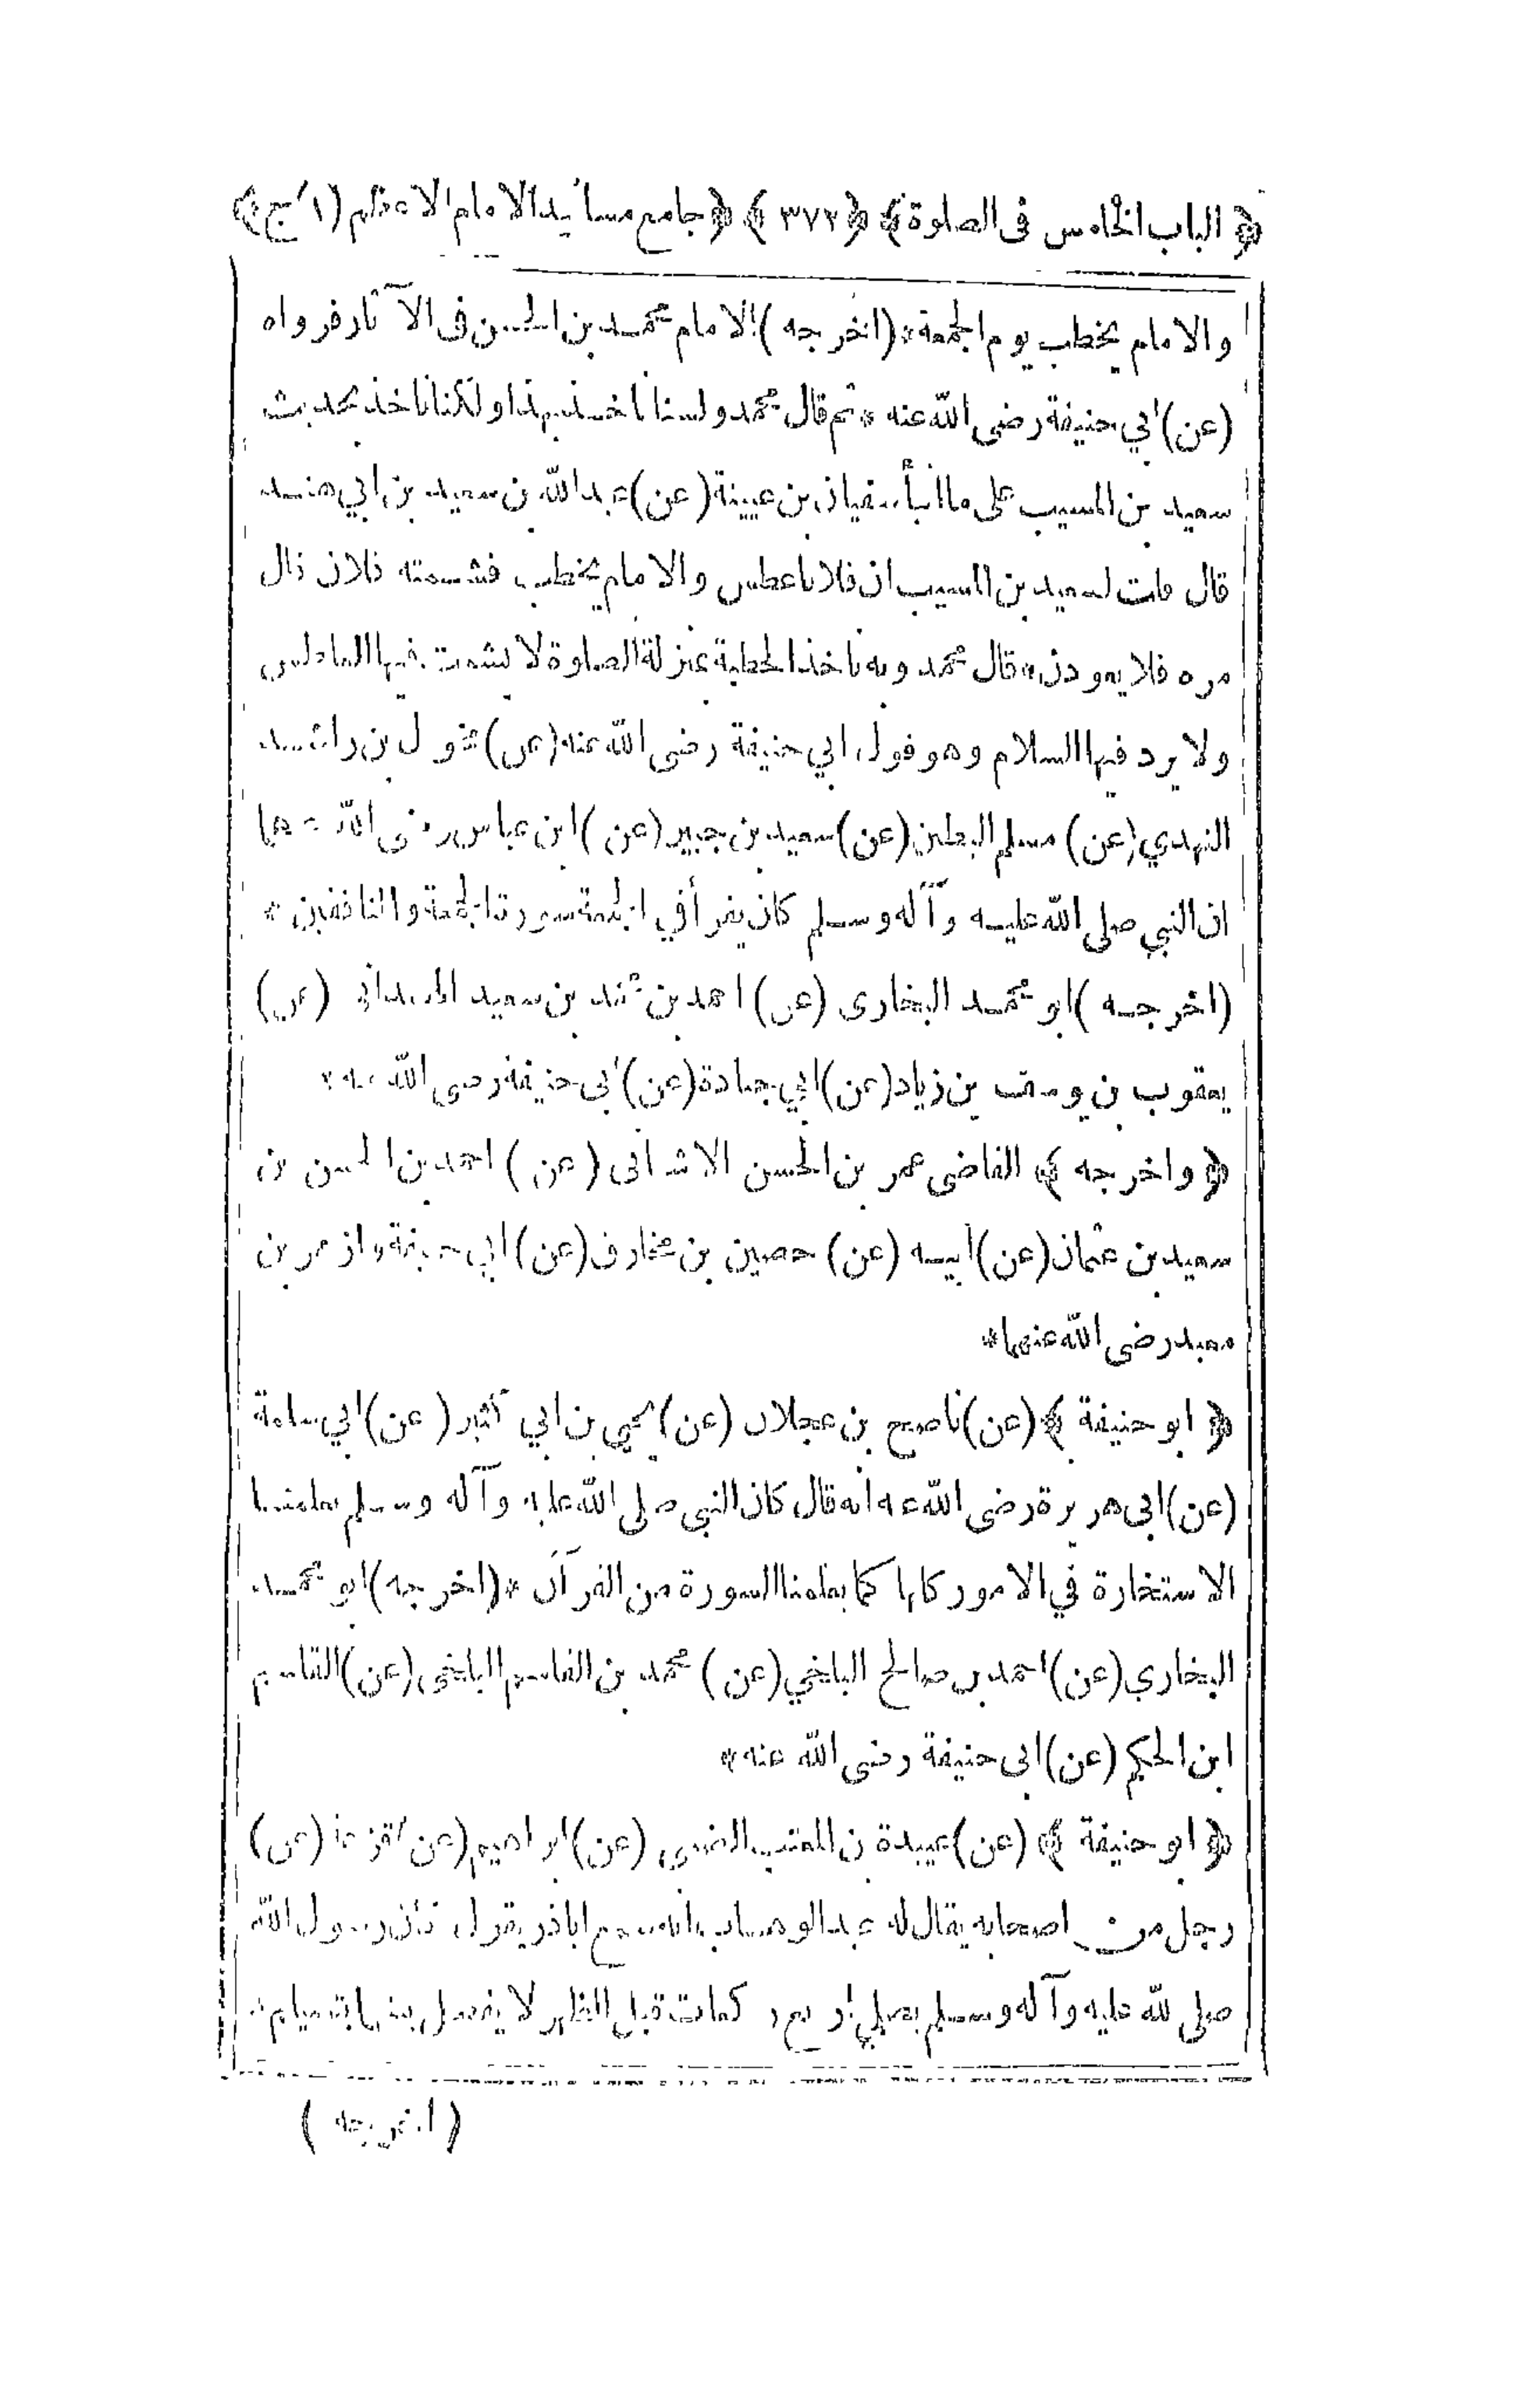 ﴿ الباب الخامس فى الصلوة ﴾ ﴿ ٣٧٢ ﴾ ﴿ جامع مسانيد الامام الاعظم (ج ١) ﴾
والامام يخطب يوم الجمعة * (اخرجه) الامام محمد بن الحسن فى الآثار فرواه
(عن) ابي حنيفة رضى الله عنه * ثم قال محمد ولسنا ناخذ بهذا ولكنا ناخذ بحديث
سعيد بن المسيب على ما انبأ سفيان بن عيينة (عن) عبد الله بن سعيد بن ابي هند
قال قلت لسعيد بن المسيب ان فلانا عطس والامام يخطب فشمته فلان قال
مره فلا يعودن * قال محمد وبه ناخذ الخطبة بمنزلة الصلوة لا يشمت فيها العاطس
ولا يرد فيها السلام وهو قول ابي حنيفة رضى الله عنه (عن) مخول بن راشد
النهدي (عن) مسلم البطين (عن) سعيد بن جبير (عن) ابن عباس رضى الله عنهما
ان النبي صلى الله عليه وآله وسلم كان يقرأ في الجمعة سورة الجمعة والمنافقين *
(اخرجه) ابو محمد البخارى (عن) احمد بن محمد بن سعيد الهمداني (عن)
يعقوب بن يوسف بن زياد (عن) ابي جنادة (عن) ابى حنيفة رضى الله عنه *
﴿ واخرجه ﴾ القاضى عمر بن الحسن الاشنانى (عن) احمد بن الحسن بن
سعيد بن عثمان (عن) ابيه (عن) حصين بن مخارق (عن) ابي حنيفة و بن
معبد رضى الله عنهما *
﴿ ابو حنيفة ﴾ (عن) ناصح بن عجلان (عن) يحيى بن ابي كثير (عن) ابي سلمة
(عن) ابى هريرة رضى الله عنه انه قال كان النبي صلى الله عليه وآله وسلم يعلمنا
الاستخارة في الامور كلها كما يعلمنا السورة من القرآن * (اخرجه) ابو محمد
البخاري (عن) احمد بن صالح البلخي (عن) محمد بن القاسم البلخى (عن) القاسم
ابن الحكم (عن) ابى حنيفة رضى الله عنه *
﴿ ابو حنيفة ﴾ (عن) عبيدة بن المعتب الضبى (عن) ابراهيم (عن) قزعة (عن)
رجل من اصحابه يقال له عبد الوهاب انه سمع اباذر يقول كان رسول الله
صلى الله عليه وآله وسلم يصلي اربع ركعات قبل الظهر لا يفصل بينها بتسليم *
(اخرجه)